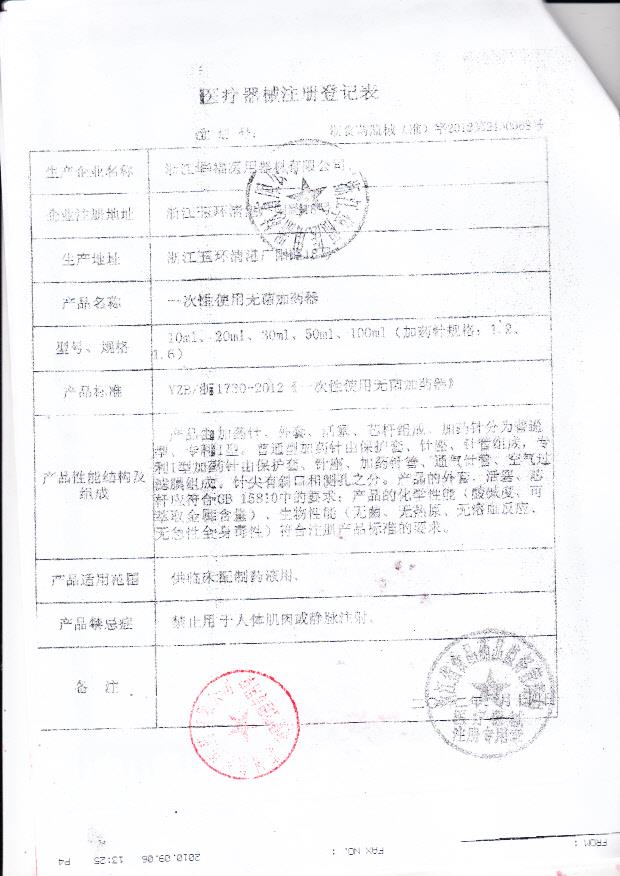 医疗器械注册登记表
生产企业名称
浙江 医用器械有限公司
企业注册地址
浙江玉环清港
生产地址
浙江玉环清港
产品名称
一次性使用无菌加药器
型号、规格
10ml、20ml、30ml、50ml、100ml（加药针规格：1.2、
1.6）
产品标准
YZB/浙1730-2012《一次性使用无菌加药器》
产品性能结构及
组成
产品由加药针、外套、活塞、芯杆组成。加药针分为普通
型、专利I型。普通型加药针由保护套、针座、针管组成，专
利I型加药针由保护套、针座、加药针管、通气针管、空气过
滤膜组成。针尖有斜口和侧孔之分。产品的外套、活塞、芯
杆应符合GB 15810中的要求；产品的化学性能（酸碱度、可
萃取金属含量）、生物性能（无菌、无热原、无溶血反应、
无急性全身毒性）符合注册产品标准的要求。
产品适用范围
供临床配制药液用。
产品禁忌症
禁止用于人体肌肉或静脉注射。
备 注
医疗器械
注册专用章
FROM :
FAX NO. :
2010.09.06 13:25 P4